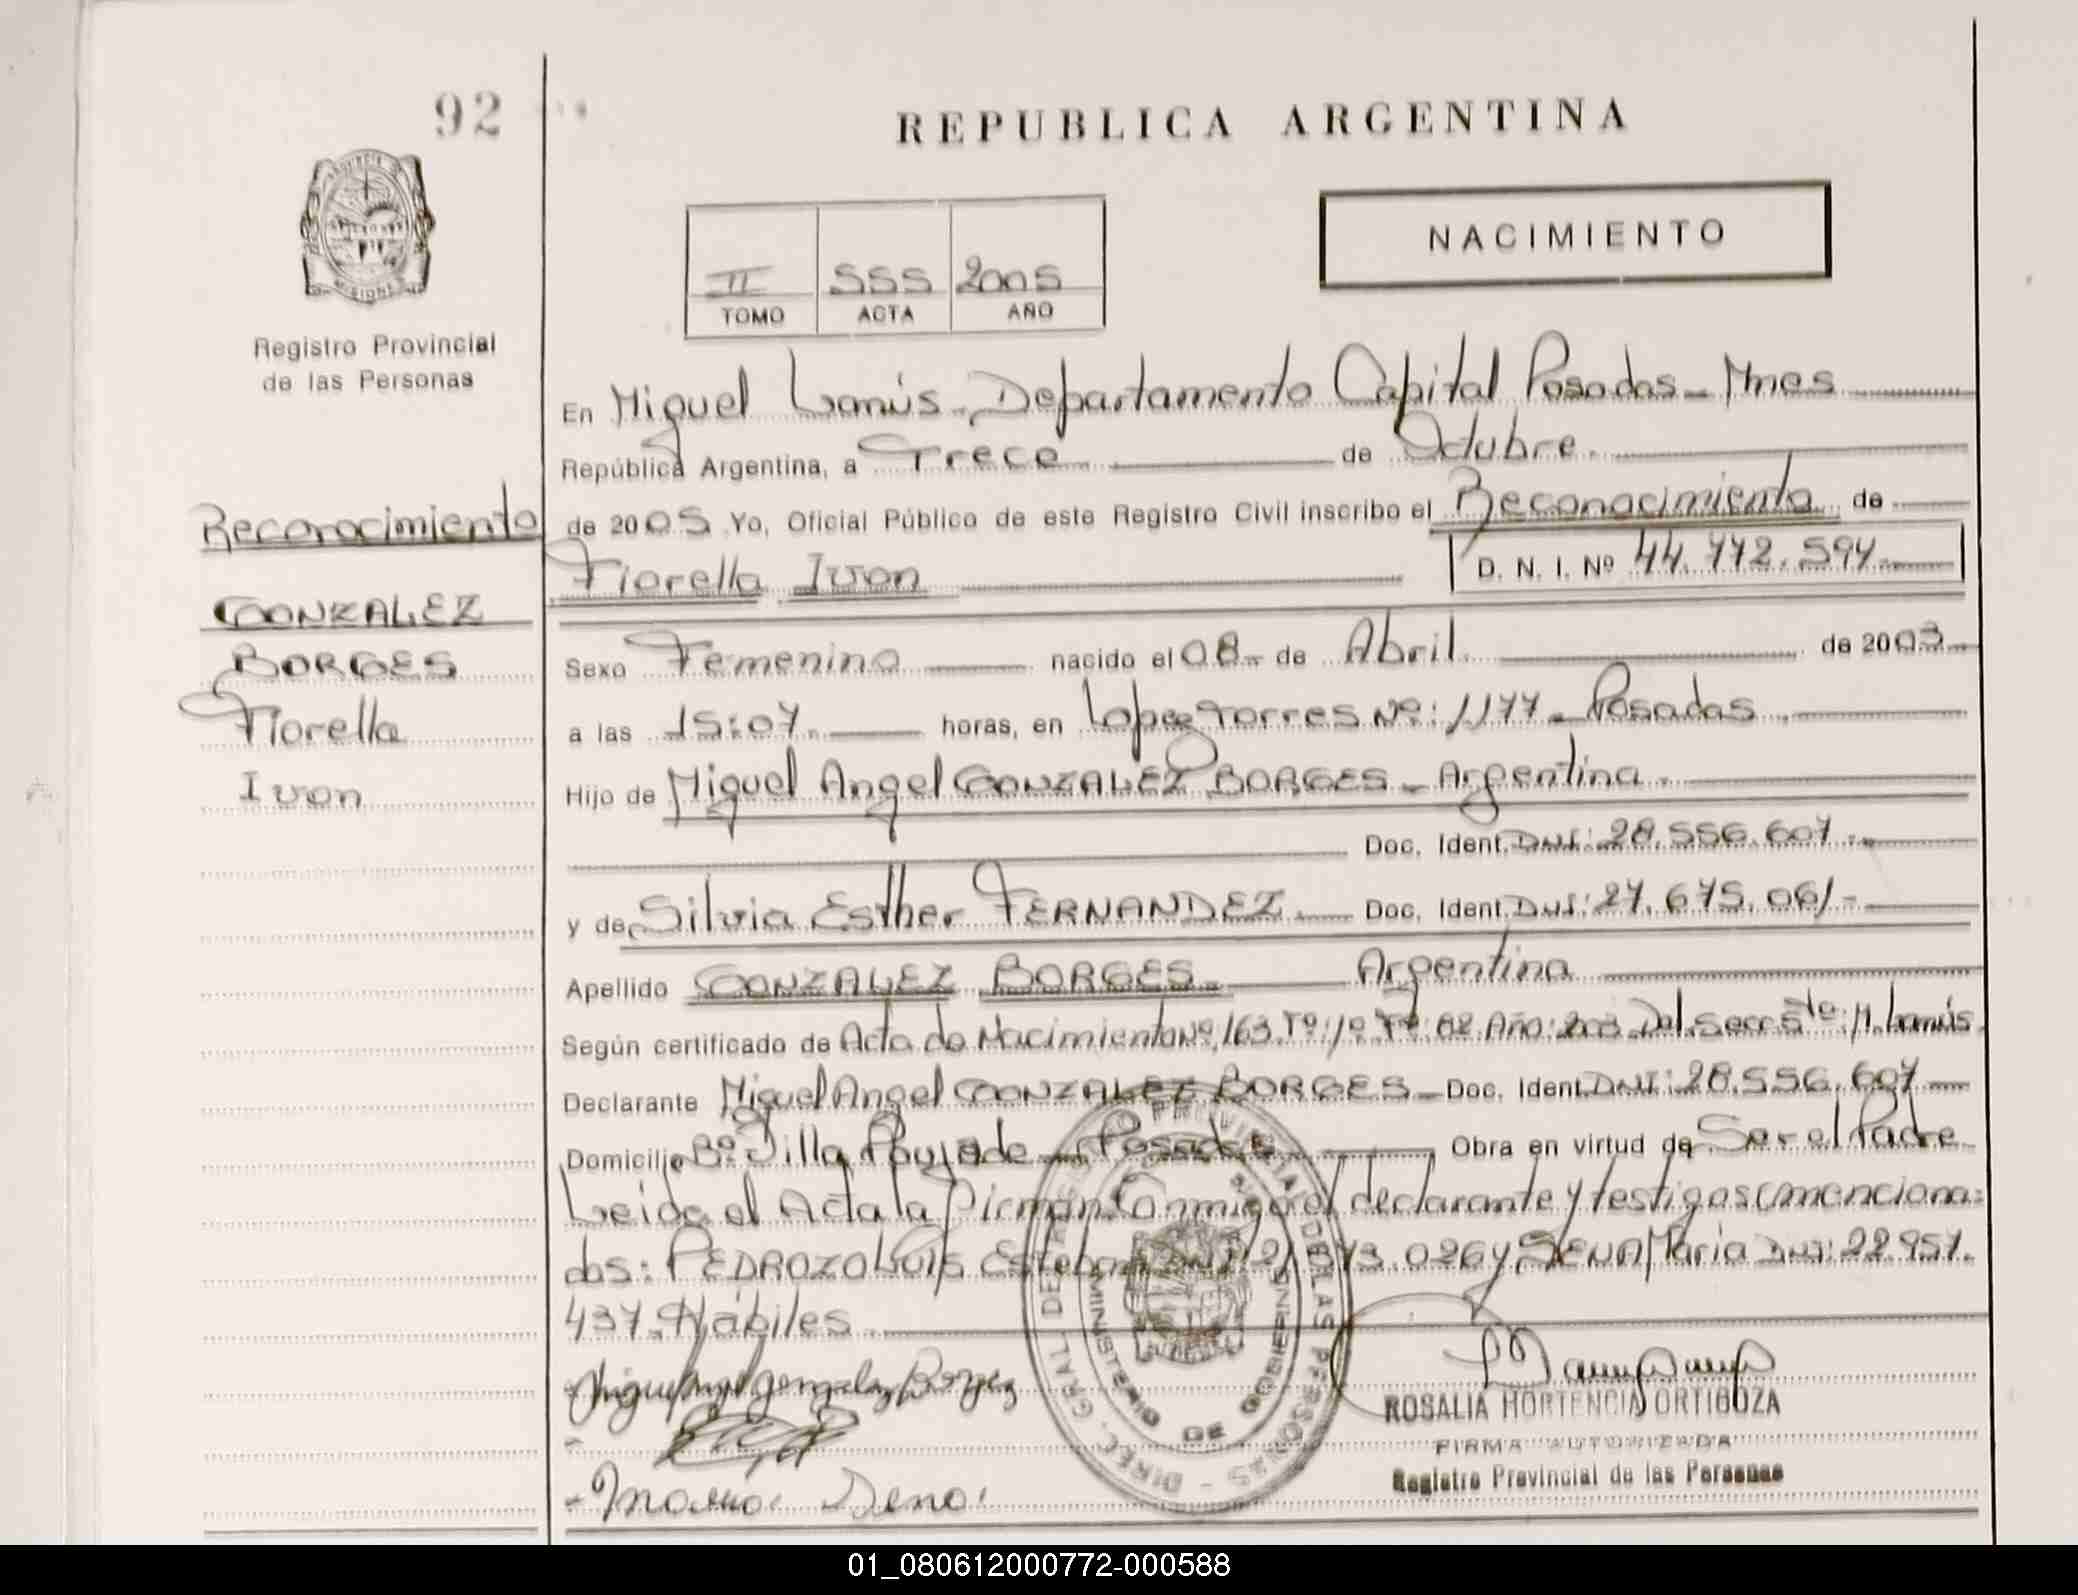 92
REPUBLICA ARGENTINA
NACIMIENTO
II 555 2005
TOMO ACTA AÑO
MISIONES
Registro Provincial
de las Personas
Reconocimiento
GONZALEZ
BORGES
Fiorella
Ivon
En Miguel Lanús - Departamento Capital Posadas - Mnes
República Argentina, a Trece de Octubre.
de 2005 Yo, Oficial Público de este Registro Civil inscribo el Reconocimiento de
Fiorella Ivon D. N. I. Nº 44.772.597
Sexo Femenino nacido el 08 - de Abril. de 2003
a las 15:07. horas, en Lopez Torres Nº: 1177 - Posadas
Hijo de Miguel Angel GONZALEZ BORGES - Argentina.
Doc. Ident. DNI: 28.556.607.-
y de Silvia Esther FERNANDEZ. Doc. Ident. DNI: 27.675.061-
Apellido GONZALEZ BORGES. Argentina
Según certificado de Acta de Nacimiento Nº 163. Tº: 1º Fº: 82 Año: 2003 Del. Secc 5ta: M. Lanús.
Declarante Miguel Angel GONZALEZ BORGES - Doc. Ident. DNI: 28.556.607
Domicilio Bº Villa Poujade - Posadas Obra en virtud de Ser el Padre
Leida el Acta la Firman Conmigo el declarante y testigos (menciona=
dos: PEDROZO Luis Esteban 073.026 y SENA Maria DNI: 22.957.
437. Hábiles
Miguel Angel Gonzalez Borges
ROSALIA HORTENCIA ORTIGOZA
FIRMA AUTORIZADA
Registro Provincial de las Personas
DIREC. GRAL. DE REGISTRO PROVINCIAL DE LAS PERSONAS
MINISTERIO DE GOBIERNO
01_080612000772-000588